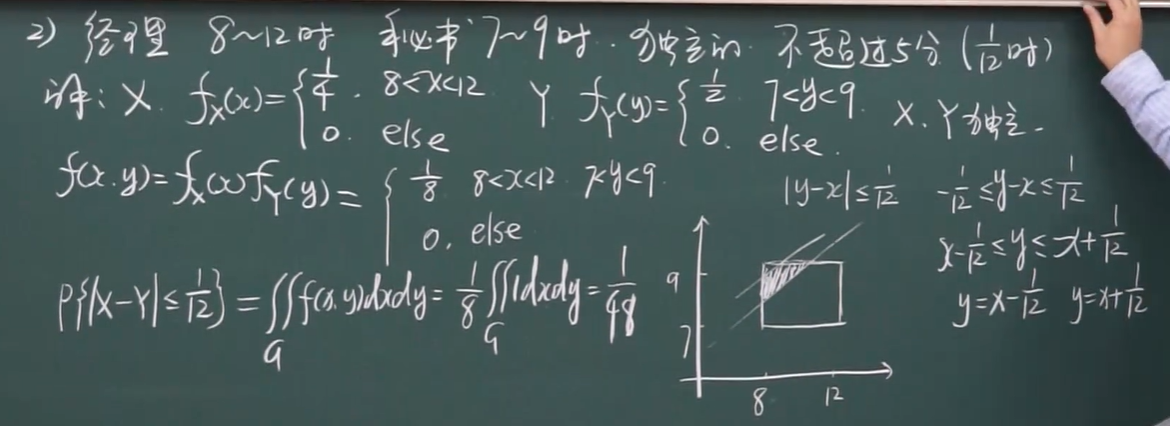 2) 经理 8~12时 秘书 7~9时. 独立的 不超过5分 (1/12时)
解: X. f_X(x)={1/4, 8<x<12; 0. else Y f_Y(y)={1/2 7<y<9; 0. else. X、Y独立.
f(x.y)=f_X(x)f_Y(y)={1/8 8<x<12 7<y<9; 0. else
|y-x|≤1/12 -1/12≤y-x≤1/12
x-1/12≤y≤x+1/12
y=x-1/12 y=x+1/12
P{|X-Y|≤1/12}=∬_G f(x,y)dxdy=1/8∬_G 1dxdy=1/48
9
7
8 12